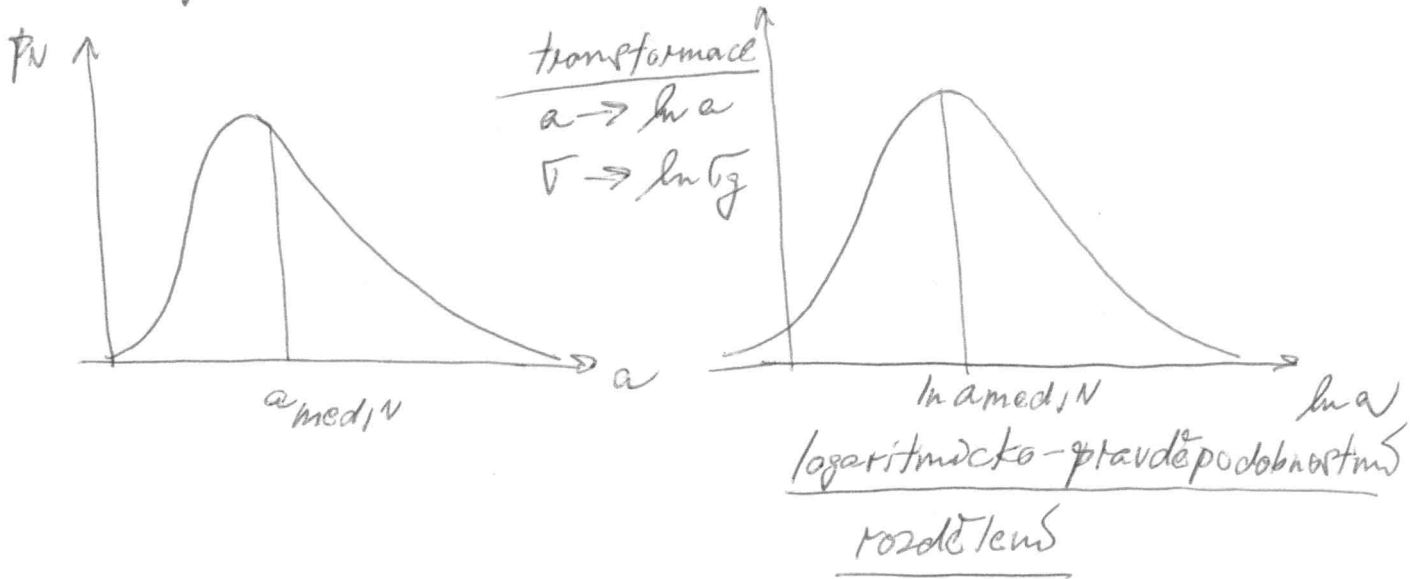 pN
transformace
a → ln a
σ → ln σg
a
a med,N
ln a med,N
ln a
logaritmicko-pravděpodobnostní
rozdělení